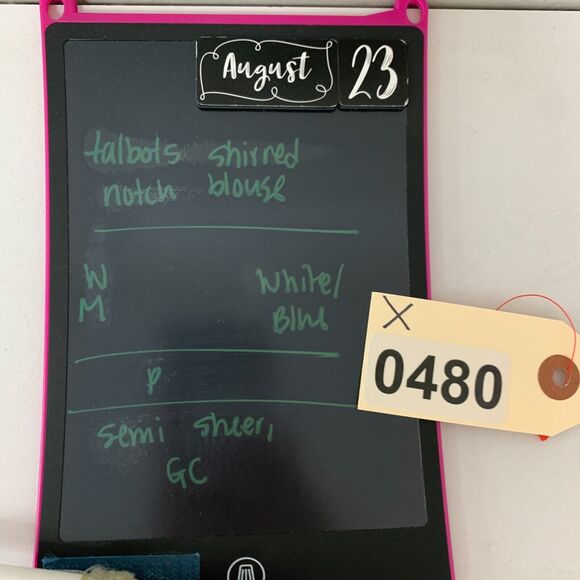 August 23
talbots shirred
notch blouse
W White/
M Blue
X
0480
P
semi sheer,
GC